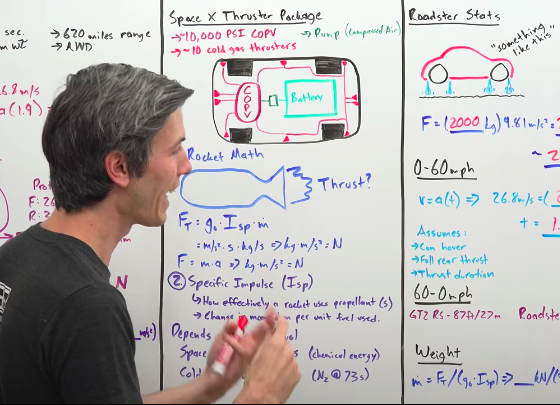 sec.
m wt
→ 620 miles range
→ AWD
6.8 m/s
a(1.9)
F: 26
R: 3
N
m/s²)
Space X Thruster Package
→ ~10,000 PSI COPV
→ Pump (Compressed Air)
→ ~10 cold gas thrusters
COPV
Battery
Rocket Math
Thrust?
F_T = g₀·I_sp·ṁ
= m/s²·s·kg/s => kg·m/s² = N
F = m·a => kg·m/s² = N
② Specific Impulse (I_sp)
↳ How effectively a rocket uses propellant (s)
→ Change in momentum per unit fuel used.
Depends
Space
(chemical energy)
Cold
(N₂ @ 73s)
Roadster Stats
"something like this"
F = (2000 kg) 9.81 m/s² =
~ 2
0-60mph
v = a(t) => 26.8 m/s = (2
t = 1.
Assumes:
→ Can hover
→ Full rear thrust
→ Thrust duration
60-0mph
GT2 RS - 87ft/27m
Roadste
Weight
ṁ = F_T/(g₀·I_sp) => __ kN/(